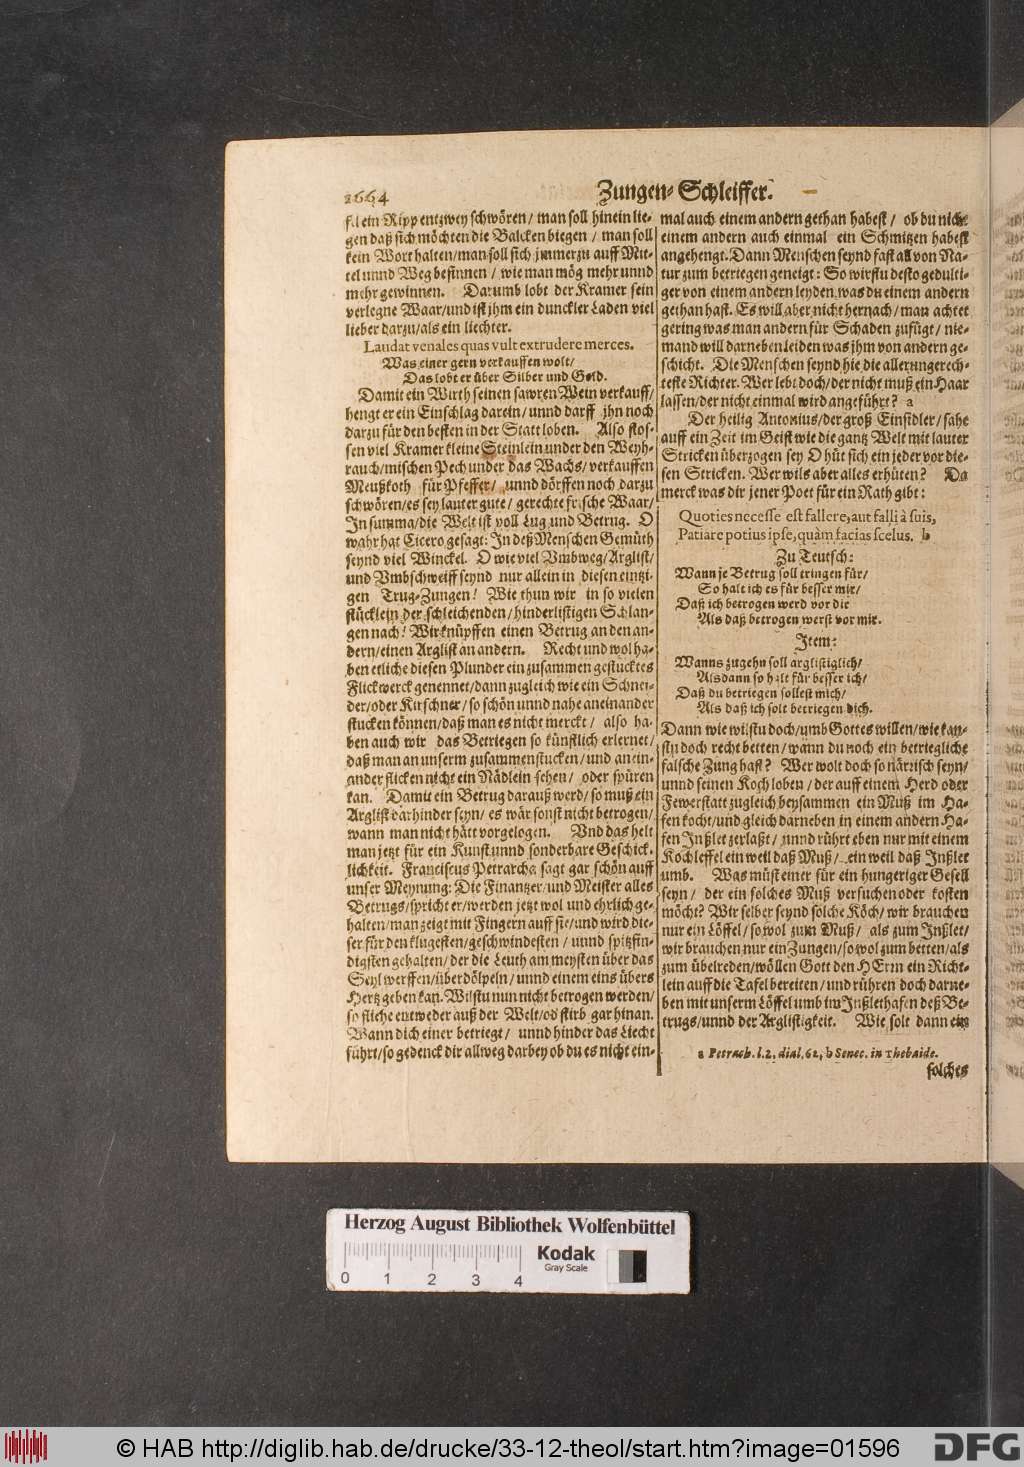 2664
Zungen-Schleiffer.
ein Ripp entzwey schwören/ man soll hinein lie-
gen daß sich möchten die Balcken biegen/ man soll
kein Wort halten/man soll sich jmmerzu auff Mit-
tel unnd Weg besinnen/ wie man mög mehr unnd
mehr gewinnen. Darumb lobt der Kramer sein
verlegne Waar/und ist jhm ein dunckler Laden viel
lieber darzu/als ein liechter.
Laudat venales quas vult extrudere merces.
Was einer gern verkauffen wolt/
Das lobt er über Silber und Gold.
Damit ein Wirth seinen sawren Wein verkauff/
hengt er ein Einschlag darein/ unnd darff jhn noch
darzu für den besten in der Statt loben. Also stos-
sen viel Kramer kleine Steinlein under den Weyh-
rauch/mischen Pech under das Wachs/ verkauffen
Meußkoth für Pfeffer/ unnd dörffen noch darzu
schwören/es sey lauter gute/ gerechte frische Waar/
In summa/die Welt ist voll Lug und Betrug. O
wahr hat Cicero gesagt: In deß Menschen Gemüth
seynd viel Winckel. O wie viel Vmbweg/Arglist/
und Vmbschweiff seynd nur allein in diesen eintzi-
gen Trug-Zungen! Wie thun wir in so vielen
stücklein der schleichenden/hinderlistigen Schlan-
gen nach! Wir knüpffen einen Betrug an den an-
dern/einen Arglist an andern. Recht und wol ha-
ben etliche diesen Plunder ein zusammen gestücktes
Flickwerck genennet/dann zugleich wie ein Schnei-
der/oder Kirschner/so schön unnd nahe aneinander
stucken können/daß man es nicht merckt/ also ha-
ben auch wir das Betriegen so künstlich erlernet/
daß man an unserm zusammenstucken/und anein-
ander flicken nicht ein Nädlein sehen/ oder spüren
kan. Damit ein Betrug darauß werd/so muß ein
Arglist darhinder seyn/ es wär sonst nicht betrogen/
wann man nicht hätt vorgelogen. Vnd das helt
man jetzt für ein Kunst unnd sonderbare Geschick-
lichkeit. Franciscus Petrarcha sagt gar schön auff
unser Meynung: Die Finantzer/und Meister alles
Betrugs/spricht er/werden jetzt wol und ehrlich ge-
halten/man zeigt mit Fingern auff sie/und wird die-
ser für den klugesten/geschwindesten/ unnd spitzfin-
digsten gehalten/der die Leuth am meysten über das
Seyl werffen/überdölpeln/unnd einem eins übers
Hertz geben kan. Wilstu nun nicht betrogen werden/
so fliehe entweder auß der Welt/od stirb gar hinan.
Wann dich einer betriegt/ unnd hinder das Liecht
führt/so gedenck dir allweg darbey ob du es nicht ein-
mal auch einem andern gethan habest/ ob du nicht
einem andern auch einmal ein Schmitzen habest
angehengt. Dann Menschen seynd fast all von Na-
tur zum betriegen geneigt: So wirstu desto gedulti-
ger von einem andern leyden was du einem andern
gethan hast. Es will aber nicht hernach/man achtet
gering was man andern für Schaden zufügt/ nie-
mand will darneben leiden was jhm von andern ge-
schicht. Die Menschen seynd hie die allerungerech-
teste Richter. Wer lebt doch/der nicht muß ein Haar
lassen/der nicht einmal wird angeführt? a
Der heilig Antonius/der groß Einsidler/sahe
auff ein Zeit im Geist wie die gantz Welt mit lauter
Stricken überzogen sey O hüt sich ein jeder vor die-
sen Stricken. Wer wils aber alles erhüten? Da
merck was dir jener Poet für ein Rath gibt:
Quoties necesse est fallere, aut falli à suis,
Patiare potius ipse, quàm facias scelus. b
Zu Teutsch:
Wann je Betrug soll tringen für/
So halt ich es für besser mir/
Daß ich betrogen werd vor dir
Als daß betrogen werst vor mir.
Item:
Wanns zugehn soll arglistiglich/
Alsdann so halt für besser ich/
Daß du betriegen sollest mich/
Als daß ich solt betriegen dich.
Dann wie wilstu doch/umb Gottes willen/wie kan-
stu doch recht betten/wann du noch ein betriegliche
falsche Zung hast? Wer wolt doch so närrisch seyn/
unnd seinen Koch loben/ der auff einem Herd oder
Fewerstatt zugleich beysammen ein Muß im Ha-
fen kocht/und gleich darneben in einem andern Ha-
fen Inßlet zerlaßt/ unnd rührt eben nur mit einem
Kochleffel ein weil daß Muß/ ein weil daß Inßlet
umb. Was müst einer für ein hungeriger Gesell
seyn/ der ein solches Muß versuchen oder kosten
möcht? Wir selber seynd solche Köch/ wir brauchen
nur ein Löffel/ so wol zum Muß/ als zum Inßlet/
wir brauchen nur ein Zungen/so wol zum betten/als
zum übelreden/wöllen Gott den HErrn ein Richt-
lein auff die Tafel bereiten/und rühren doch darne-
ben mit unserm Löffel umb im Inßlethafen deß Be-
trugs/unnd der Arglistigkeit. Wie solt dann ein
a Petrach. l. 2. dial. 62, b Senec. in Thebaide.
solches
Herzog August Bibliothek Wolfenbüttel
Kodak
Gray Scale
0 1 2 3 4
© HAB http://diglib.hab.de/drucke/33-12-theol/start.htm?image=01596
DFG